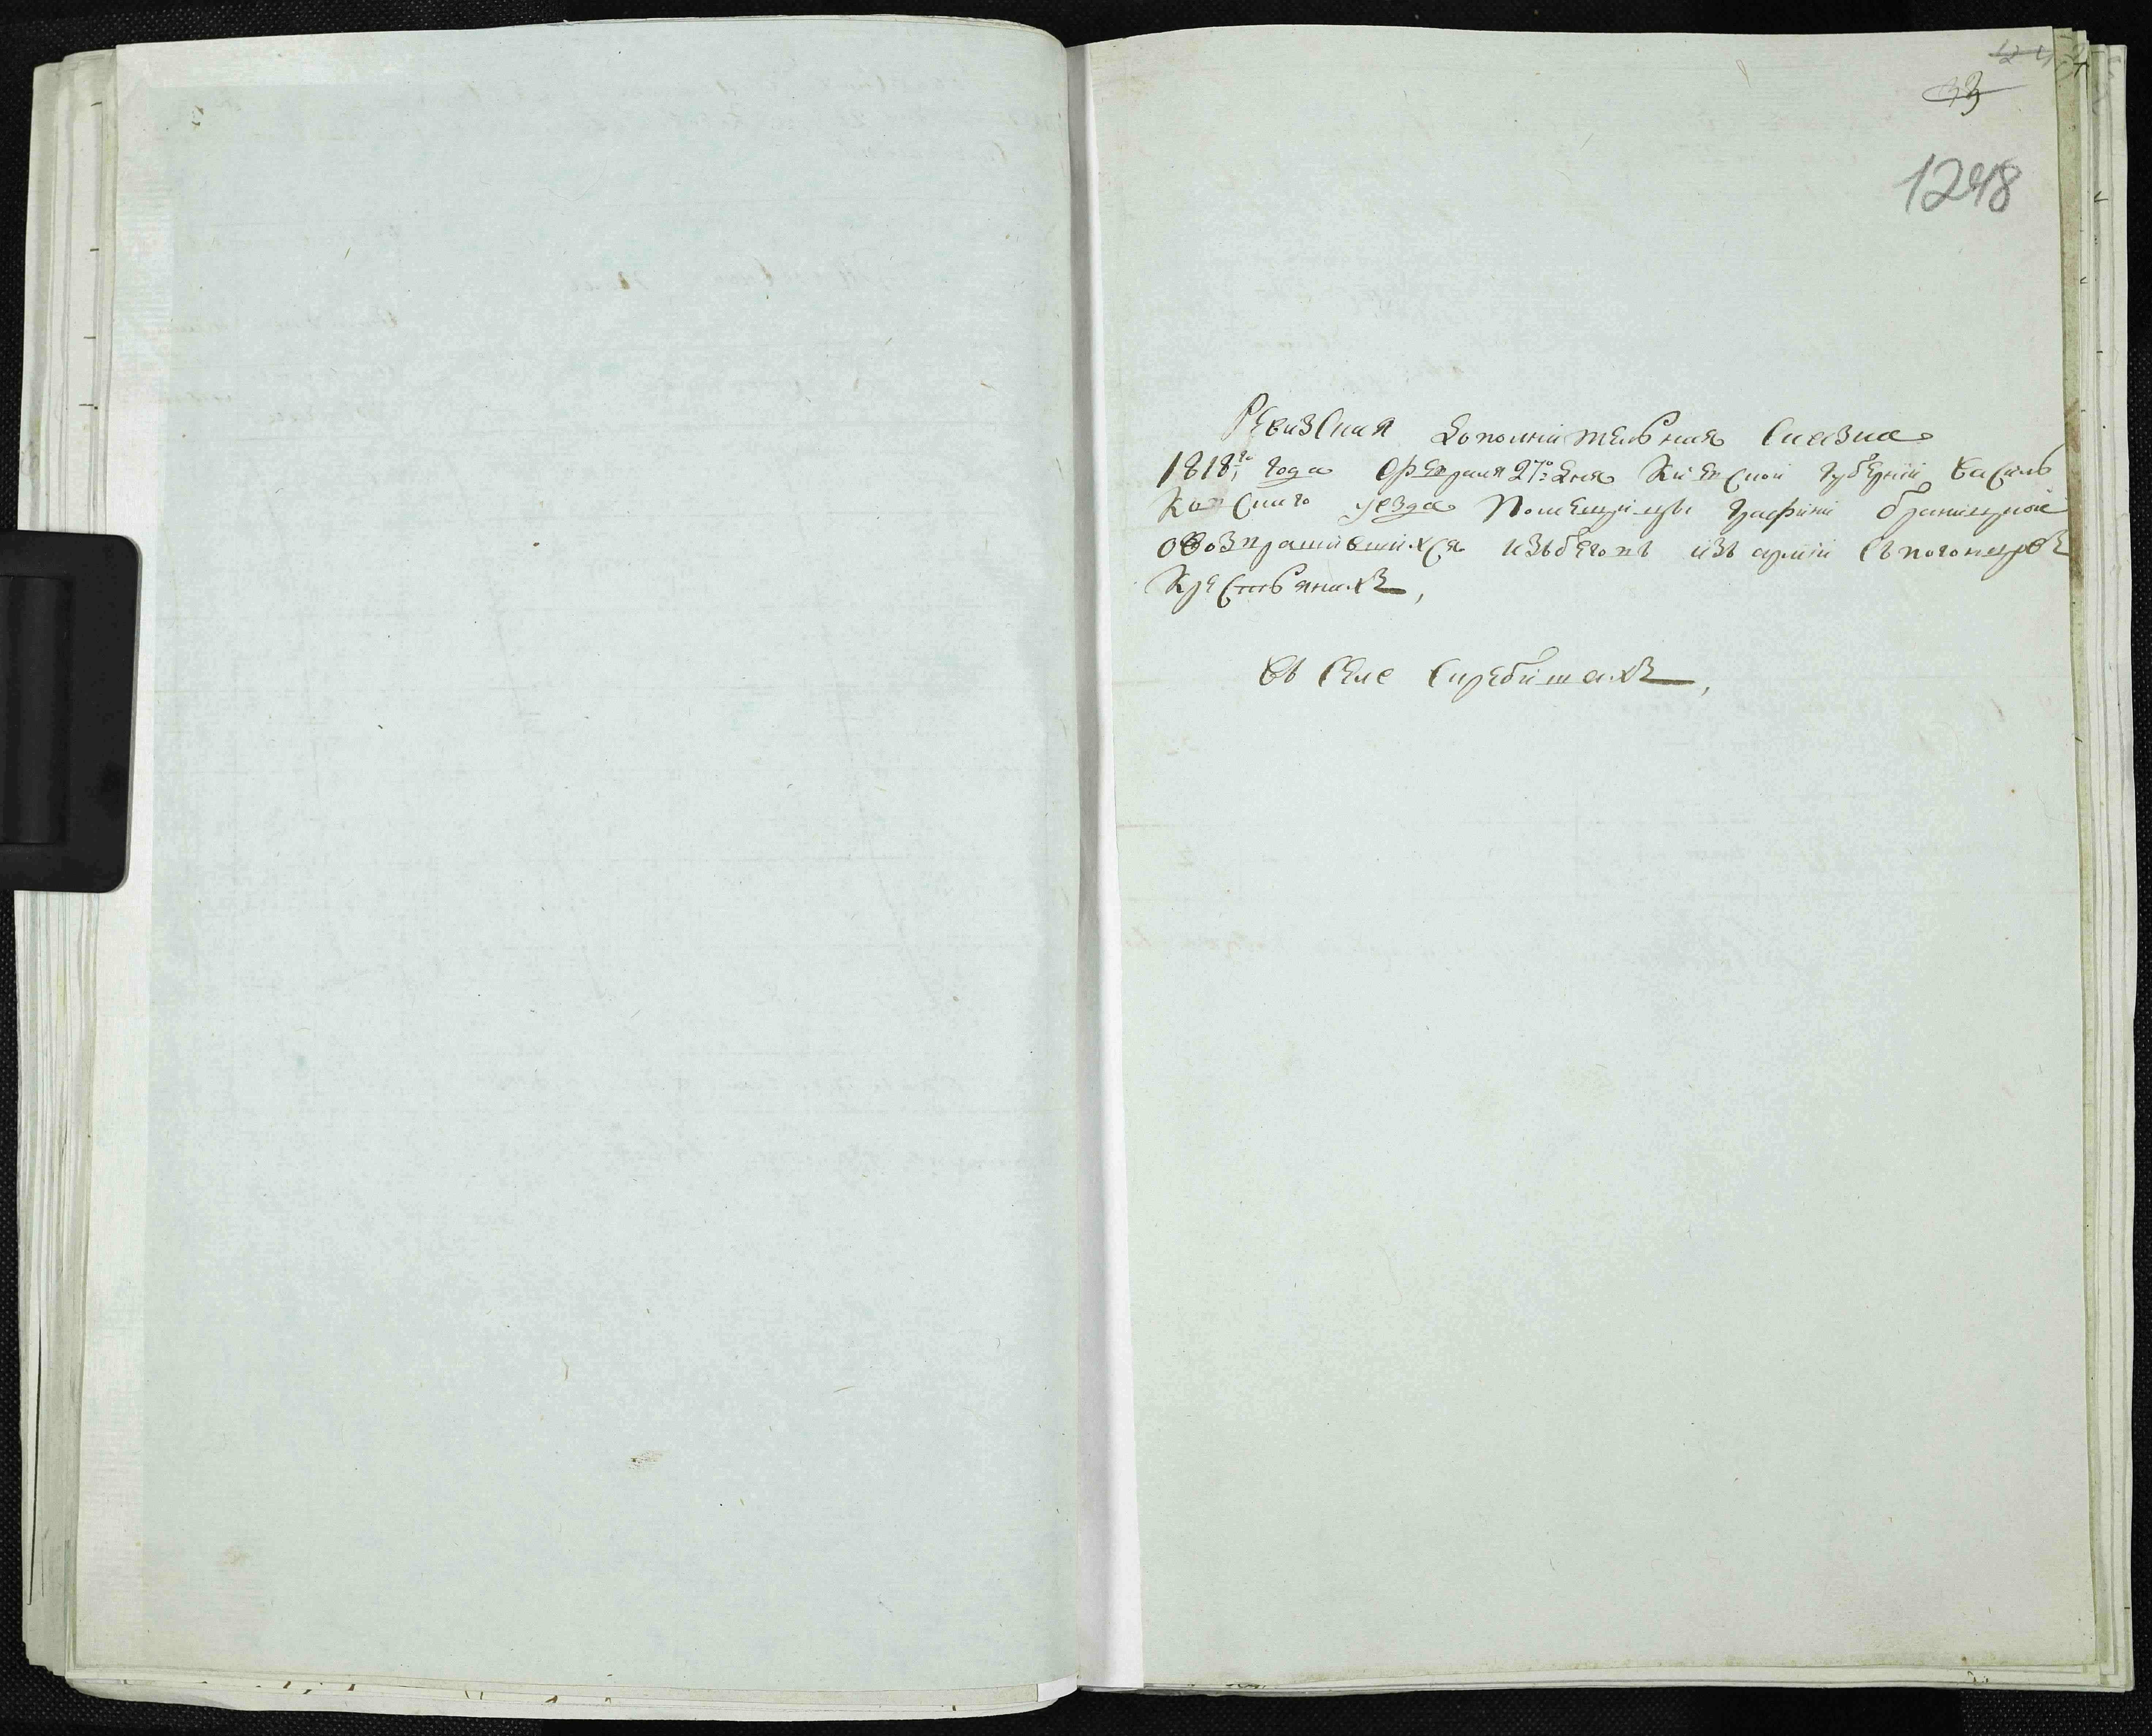 33
1248
Ревизская дополнительная сказка
1818го года февраля 27го дня Киевской губернии Василь
ковского уезда помещицы графини Браницкой
о возвратившихся изъ бегов изъ армии съ погонцровъ
крестьянахъ,
въ селе Скребишахъ,